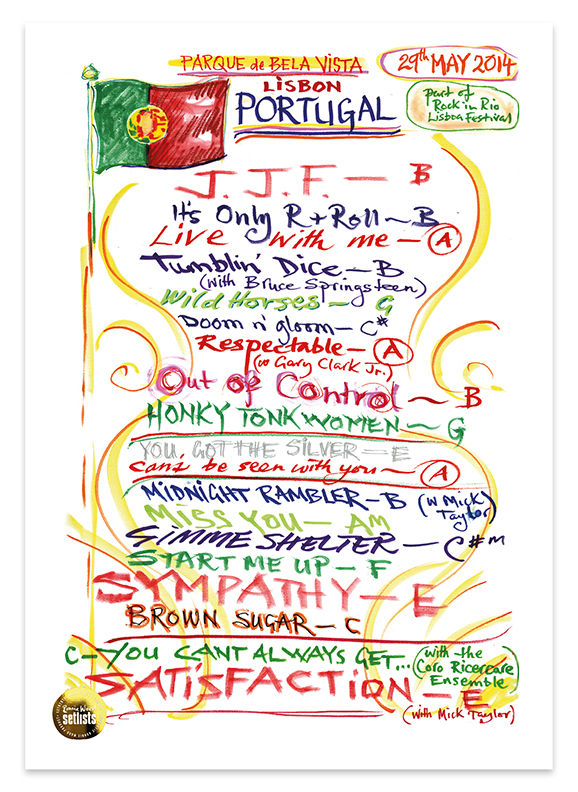 PARQUE de BELA VISTA
29th MAY 2014
LISBON
PORTUGAL
part of
Rock in Rio
Lisboa Festival
J.J.F. — B
It's Only R+Roll ~ B
Live with me — A
Tumblin' Dice — B
(with Bruce Springsteen)
Wild Horses — G
Doom n' gloom — C#
Respectable — A
(w Gary Clark Jr.)
Out of Control ~ B
HONKY TONK WOMEN ~ G
YOU GOT THE SILVER — E
Cant be seen with you ~ A
MIDNIGHT RAMBLER - B (W Mick Taylor)
MISS YOU — AM
GIMME SHELTER — C#m
START ME UP — F
SYMPATHY — E
BROWN SUGAR — C
C — YOU CANT ALWAYS GET... (with the
Coro Ricercare
Ensemble)
SATISFACTION — E
(with Mick Taylor)
Ronnie Wood
setlists